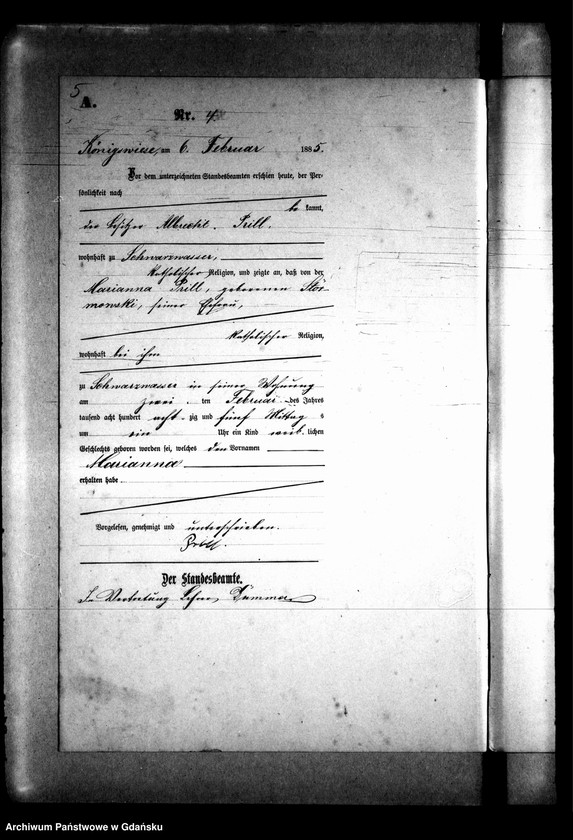 5
A.
Nr. 4
Königswiese, am 6. Februar 1885.
Vor dem unterzeichneten Standesbeamten erschien heute, der Per-
sönlichkeit nach
be kannt,
der Besitzer Albrecht Prill,
wohnhaft zu Schwarzwasser,
katholischer Religion, und zeigte an, daß von der
Marianna Prill, geborenen Stos-
mowski, seiner Ehefrau,
katholischer Religion,
wohnhaft bei ihm
zu Schwarzwasser in seiner Wohnung
am zwei ten Februar des Jahres
tausend acht hundert acht zig und fünf Mittag s
um ein Uhr ein Kind weib lichen
Geschlechts geboren worden sei, welches den Vornamen
Marianna
erhalten habe.
Vorgelesen, genehmigt und unterschrieben.
Prill.
Der Standesbeamte.
In Vertretung Lehrer
Archiwum Państwowe w Gdańsku